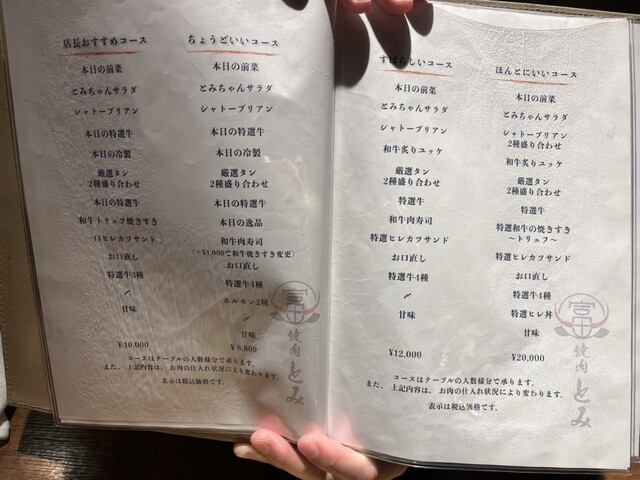 店長おすすめコース
本日の前菜
とみちゃんサラダ
シャトーブリアン
本日の特選牛
本日の冷製
厳選タン
2種盛り合わせ
本日の特選牛
和牛トリュフ焼きすき
一口ヒレカツサンド
お口直し
特選牛3種
〆
甘味
¥10,000
ちょうどいいコース
本日の前菜
とみちゃんサラダ
シャトーブリアン
本日の特選牛
本日の冷製
厳選タン
2種盛り合わせ
本日の特選牛
本日の逸品
和牛肉寿司
(+¥1,000で和牛焼きすき変更)
お口直し
特選牛4種
ホルモン2種
〆
甘味
¥8,800
コースはテーブルの人数様分で承ります。
また、上記内容は、お肉の仕入れ状況により変わります。
表示は税込価格です。
富
焼肉とみ
すばらしいコース
本日の前菜
とみちゃんサラダ
シャトーブリアン
和牛炙りユッケ
厳選タン
2種盛り合わせ
特選牛
和牛肉寿司
特選ヒレカツサンド
お口直し
特選牛4種
〆
甘味
¥12,000
ほんとにいいコース
本日の前菜
とみちゃんサラダ
シャトーブリアン
2種盛り合わせ
和牛炙りユッケ
厳選タン
2種盛り合わせ
特選牛
特選和牛の焼きすき
〜トリュフ〜
特選ヒレカツサンド
お口直し
特選牛4種
特選ヒレ丼
甘味
¥20,000
コースはテーブルの人数様分で承ります。
また、上記内容は、お肉の仕入れ状況により変わります。
表示は税込価格です。
富
焼肉とみ